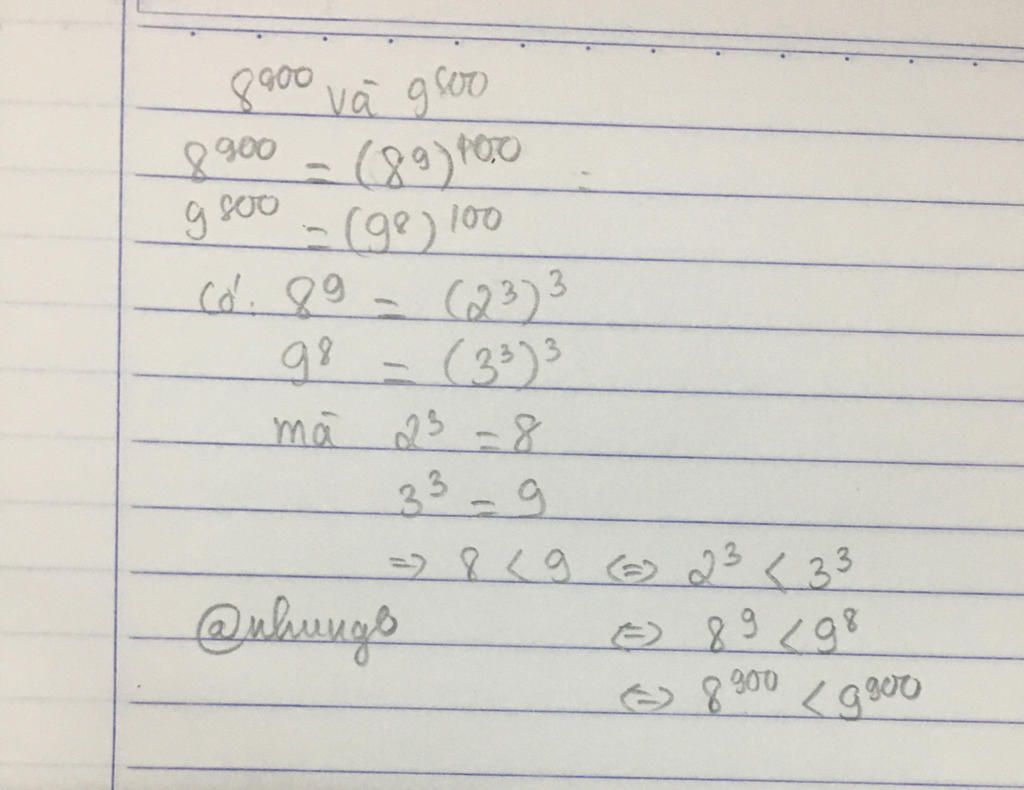 8⁹⁰⁰ và 9⁸⁰⁰
8⁹⁰⁰ = (8⁹)¹⁰⁰
9⁸⁰⁰ = (9⁸)¹⁰⁰
Có: 8⁹ = (2³)³
9⁸ = (3³)³
mà 2³ = 8
3³ = 9
=> 8 < 9 <=> 2³ < 3³
@nhungs <=> 8⁹ < 9⁸
<=> 8⁹⁰⁰ < 9⁹⁰⁰